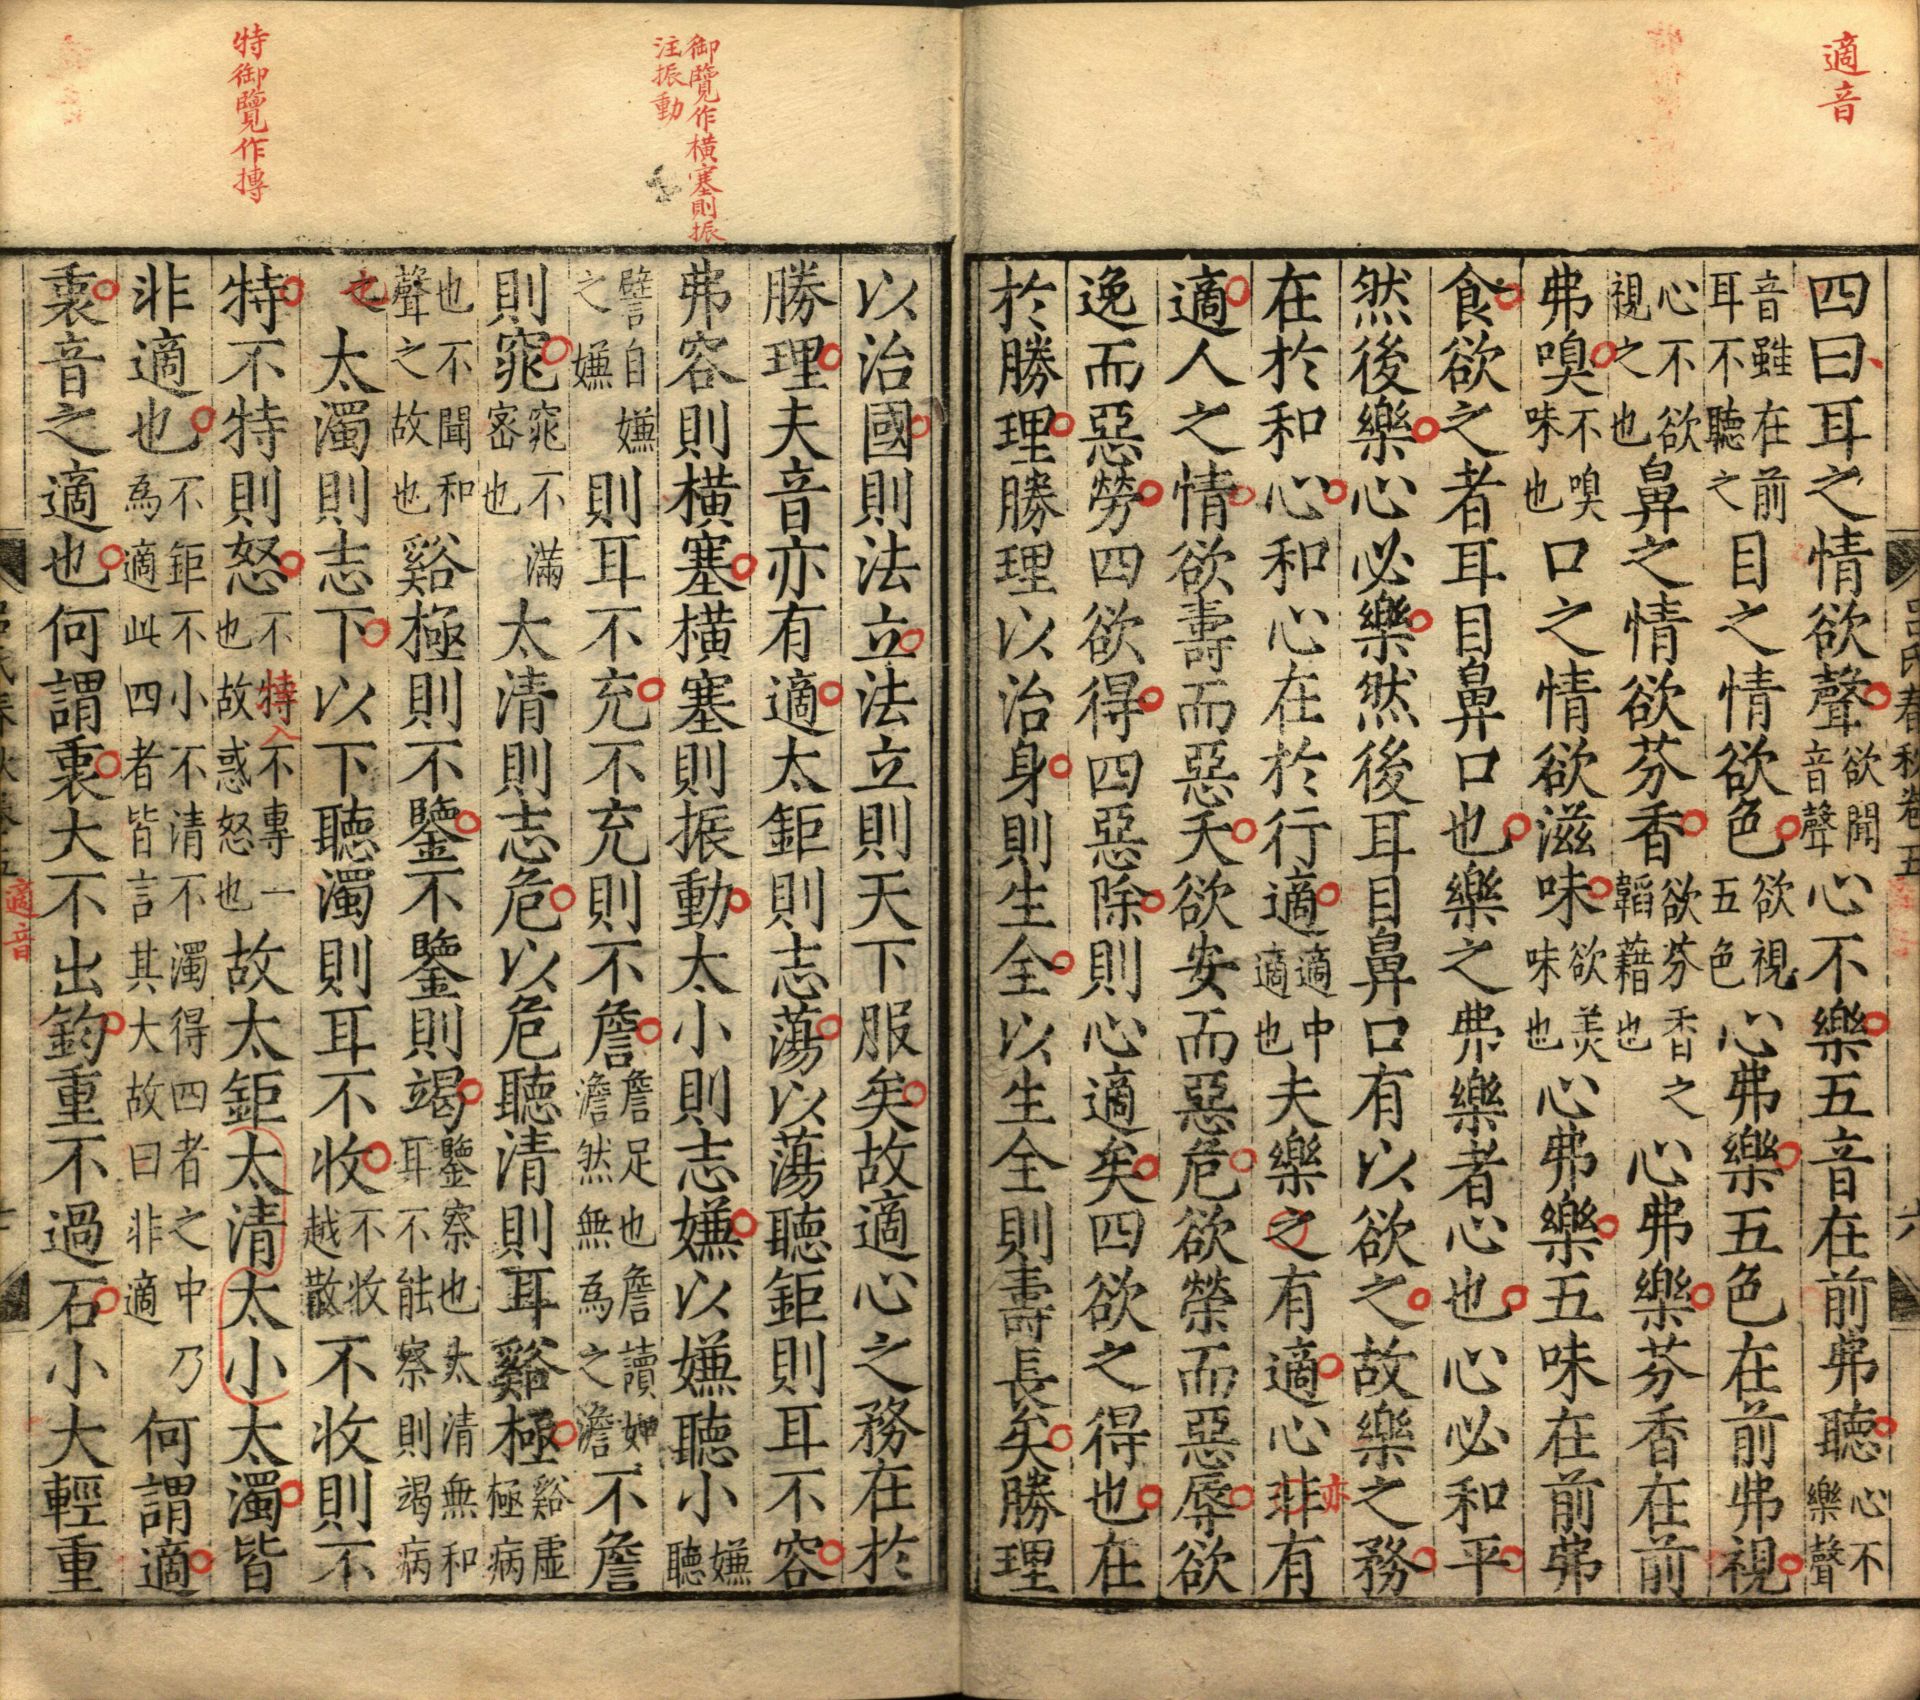 適音
四曰耳之情欲聲欲聞音聲心不樂五音在前弗聽心不樂聲
音雖在前耳不聽之目之情欲色欲視五色心弗樂五色在前弗視
心不欲視之也鼻之情欲芬香欲芬香之韜藉也心弗樂芬香在前
弗嗅不嗅味也口之情欲滋味欲美味也心弗樂五味在前弗
食欲之者耳目鼻口也樂之弗樂者心也心必和平
然後樂心必樂然後耳目鼻口有以欲之故樂之務
在於和心和心在於行適適中適也夫樂之有適心非亦有
適人之情欲壽而惡夭欲安而惡危欲榮而惡辱欲
逸而惡勞四欲得四惡除則心適矣四欲之得也在
於勝理勝理以治身則生全以生全則壽長矣勝理
呂氏春秋卷五
六
御覽作橫塞則振
注振動
特御覽作摶
以治國則法立法立則天下服矣故適心之務在於
勝理夫音亦有適太鉅則志蕩以蕩聽鉅則耳不容
弗容則橫塞橫塞則振動太小則志嫌以嫌聽小嫌聽
譬自嫌之嫌則耳不充不充則不詹詹足也詹讀如澹然無為之澹不詹
則窕窕不滿密也太清則志危以危聽清則耳谿極谿虛極病
也不聞和聲之故也谿極則不鑒不鑒則竭鑒察也太清無和耳不能察則竭病
之太濁則志下以下聽濁則耳不收不收越散不收則不
特不特則怒不特不專一也故惑怒也故太鉅太清太小太濁皆
非適也不鉅不小不清不濁得四者之中乃為適此四者皆言其大故曰非適何謂適
衷音之適也何謂衷大不出鈞重不過石小大輕重
適音